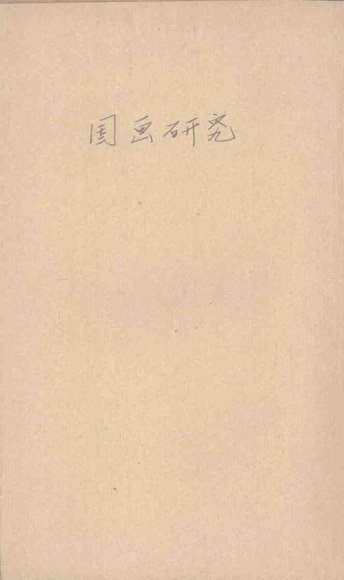 国画研究